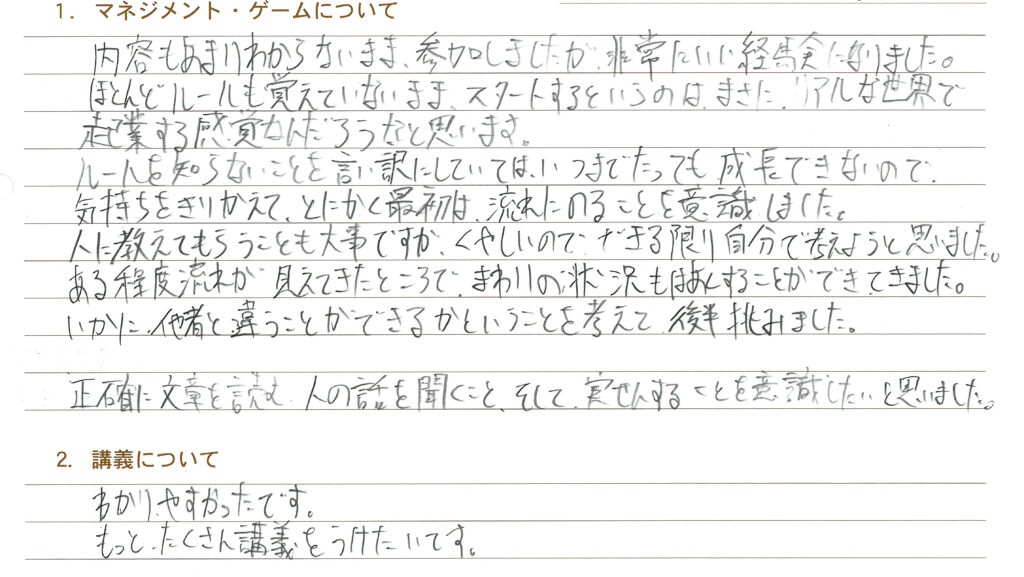 1. マネジメント・ゲームについて
内容もあまりわからないまま、参加しましたが、非常にいい経験になりました。
ほとんどルールも覚えていないまま、スタートするというのは、まさに、リアルな世界で
起業する感覚なんだろうなと思います。
ルールを知らないことを言い訳にしていては、いつまでたっても成長できないので、
気持ちをきりかえて、とにかく最初は、流れにのることを意識しました。
人に教えてもらうことも大事ですが、くやしいので、できる限り自分で考えようと思いました。
ある程度流れが見えてきたところで、まわりの状況もはあくすることができてきました。
いかに、他者と違うことができるかということを考えて、後半挑みました。
正確に文章を読む、人の話を聞くこと、そして、実せんすることを意識したいと思いました。
2. 講義について
わかりやすかったです。
もっと、たくさん講義をうけたいです。